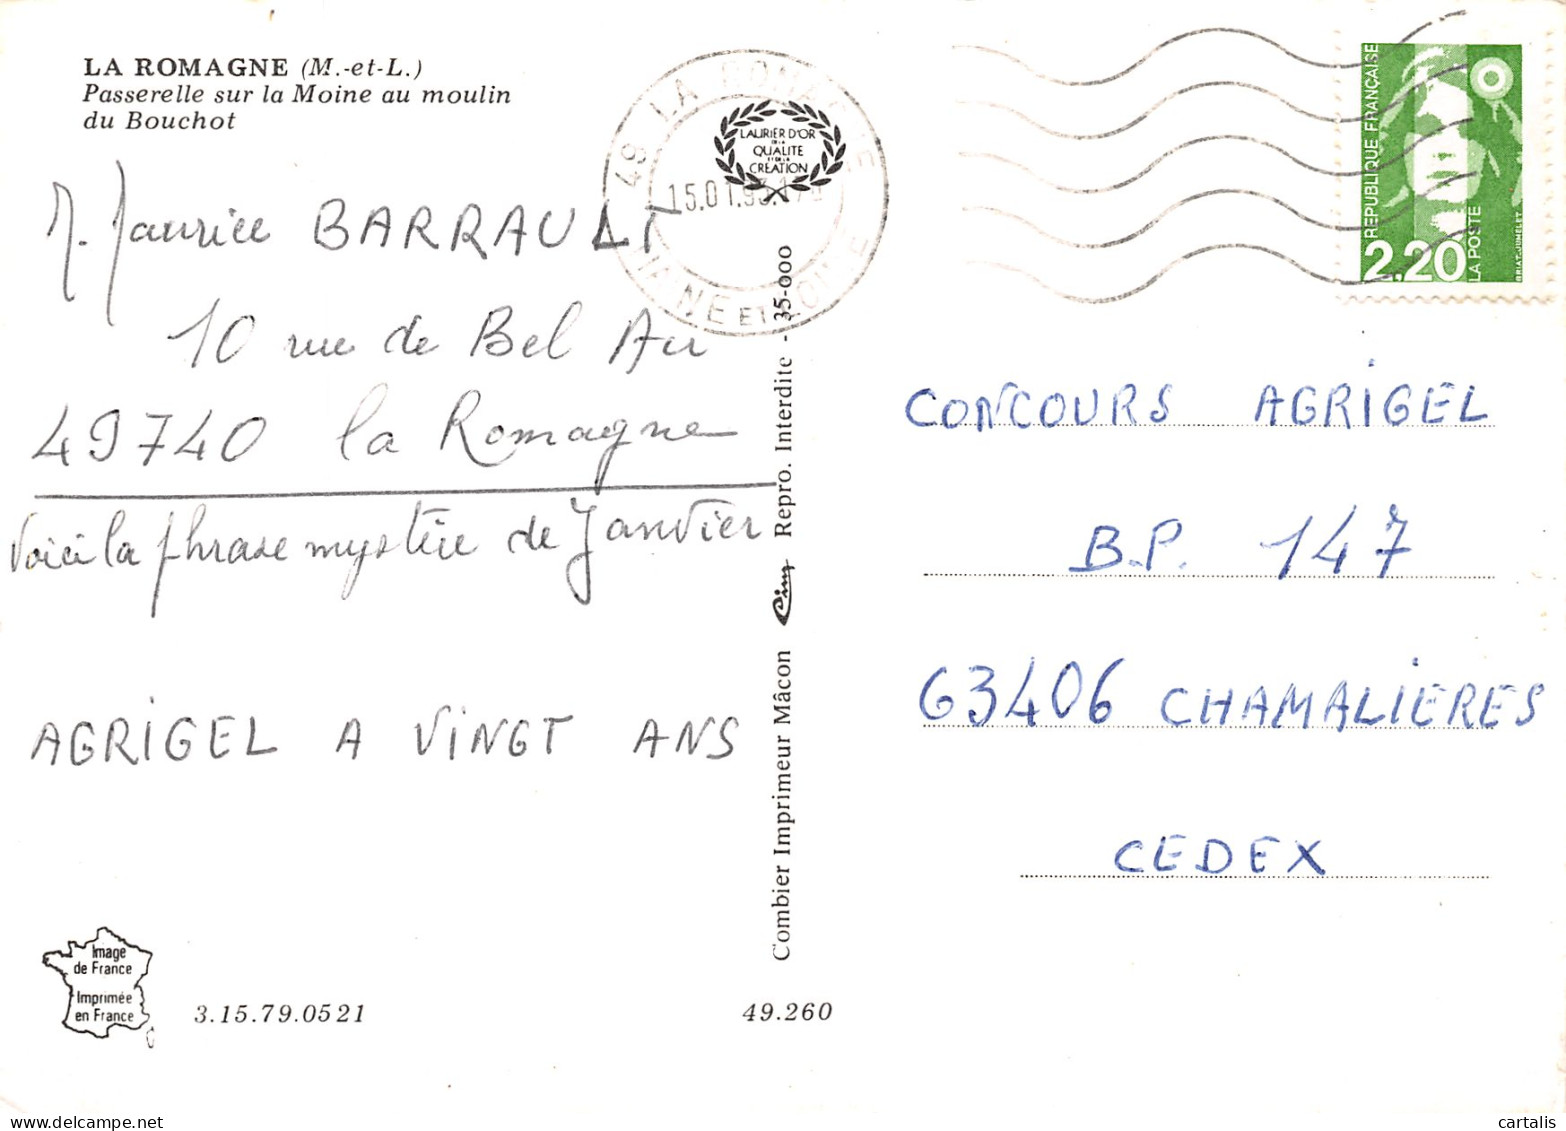 LA ROMAGNE (M.-et-L.)
Passerelle sur la Moine au moulin
du Bouchot
M. Maurice BARRAULT
10 rue de Bel Air
49740 la Romagne
Voici la phrase mystère de Janvier
AGRIGEL A VINGT ANS
Image
de France
Imprimée
en France
3.15.79.0521
49.260
Combier Imprimeur Mâcon Cim Repro. Interdite - 35-000
49 LA ROMAGNE
LAURIER D'OR
DE LA
QUALITE
ET DE LA
CREATION
15.01.93
MAINE ET LOIRE
REPUBLIQUE FRANÇAISE
2.20
LA POSTE
BRIAT-JUMELET
CONCOURS AGRIGEL
B.P. 147
63406 CHAMALIERES
CEDEX
cartalis